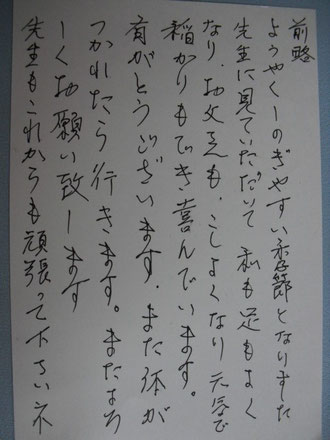 前略
ようやくしのぎやすい季節となりました
先生に見ていただいて私も足もよく
なり、お父さんも、こしもよくなり元気で
稲かりもでき喜んでいます。
有がとうございます、また体が
つかれたら行きます。またよろ
しくお願い致します
先生もこれからも頑張って下さいネ